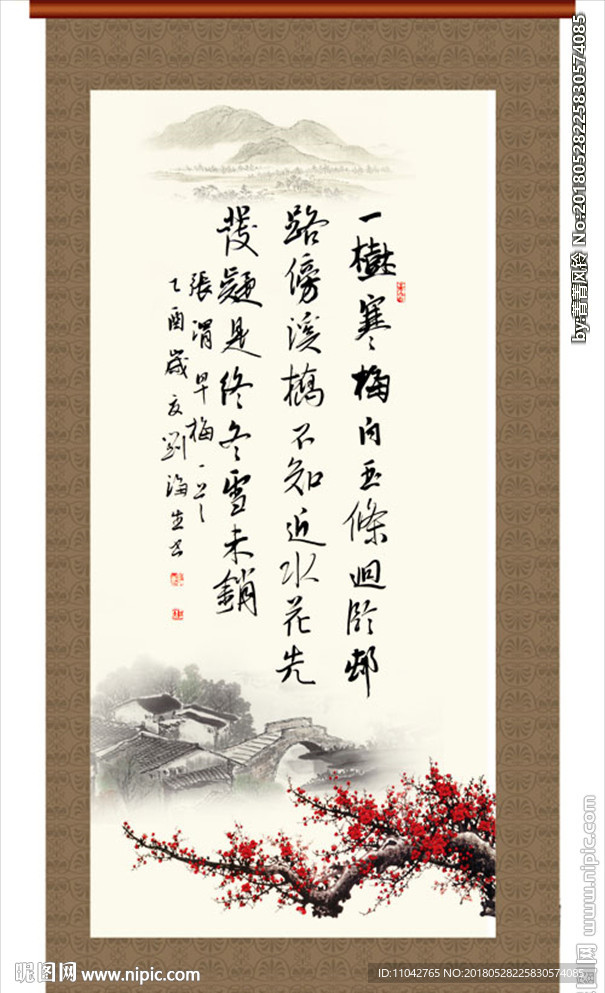 一樹寒梅白玉條迴臨邨
路傍溪橋不知近水花先
發疑是終冬雪未銷
張渭早梅一首
乙酉歲夏劉海生书
by:菁菁风铃 No:20180528225830574085
昵图网 www.nipic.com
www.nipic.com
ID:11042765 NO:20180528225830574085